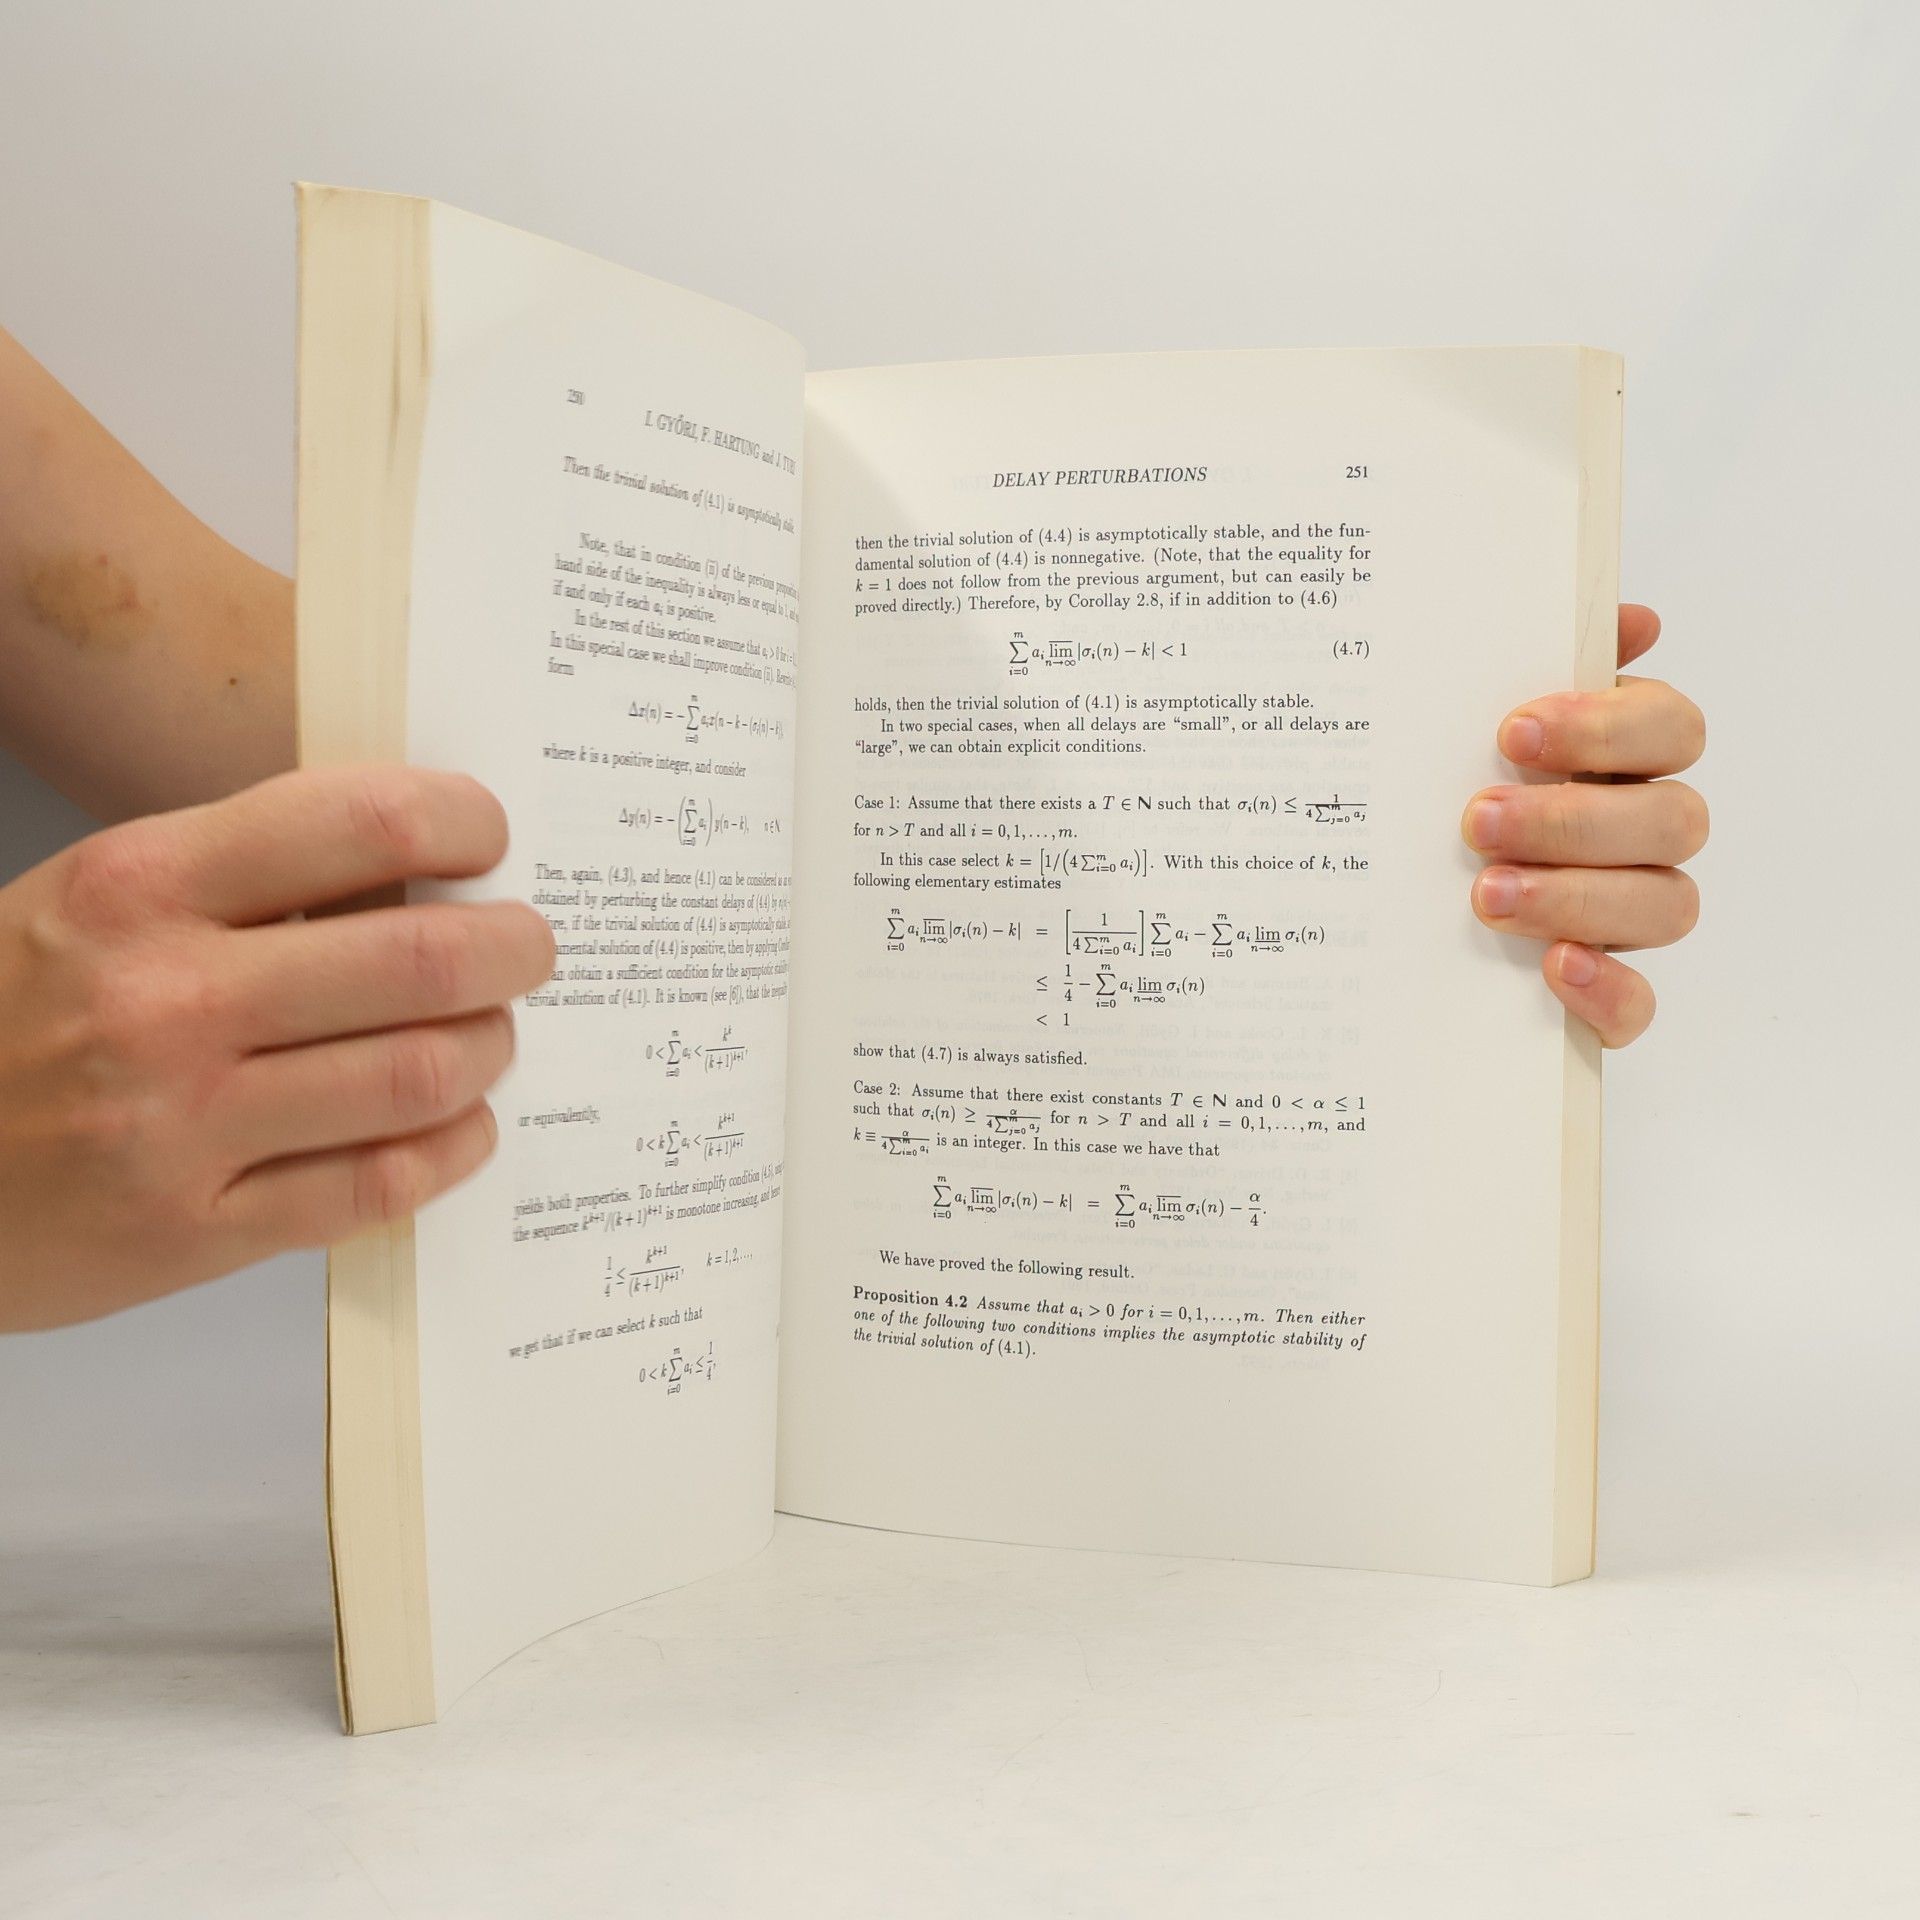 250
I. GYŐRI, F. HARTUNG and J. TURI
Then the trivial solution of (4.1) is asymptotically stable.
Note, that in condition (ii) of the previous
hand side of the inequality is always less or equal to 1, and
if and only if each a_i is positive.
In the rest of this section we assume that a_i > 0 for i = 0,
In this special case we shall improve condition (ii). Rewrite
form
Δx(n) = − ∑_{i=0}^{m} a_i x(n − k − (σ_i(n) − k)),
where k is a positive integer, and consider
Δy(n) = − (∑_{i=0}^{m} a_i) y(n − k), n ∈ N
Then, again, (4.3), and hence (4.1) can be considered as
obtained by perturbing the constant delays of (4.4) by
fore, if the trivial solution of (4.4) is asymptotically stable,
amental solution of (4.4) is positive, then by applying
an obtain a sufficient condition for the asymptotic
trivial solution of (4.1). It is known (see [6]), that the
0 < ∑_{i=0}^{m} a_i < k^k/(k + 1)^{k+1},
or equivalently,
0 < k ∑_{i=0}^{m} a_i < k^{k+1}/(k + 1)^{k+1}
yields both properties. To further simplify condition (4.5),
the sequence k^{k+1}/(k + 1)^{k+1} is monotone increasing, and hence
1/4 ≤ k^{k+1}/(k + 1)^{k+1}, k = 1, 2, ...,
we get that if we can select k such that
0 < k ∑_{i=0}^{m} a_i ≤ 1/4,
DELAY PERTURBATIONS 251
then the trivial solution of (4.4) is asymptotically stable, and the fun-
damental solution of (4.4) is nonnegative. (Note, that the equality for
k = 1 does not follow from the previous argument, but can easily be
proved directly.) Therefore, by Corollay 2.8, if in addition to (4.6)
∑_{i=0}^{m} a_i \overline{lim}_{n→∞} |σ_i(n) − k| < 1 (4.7)
holds, then the trivial solution of (4.1) is asymptotically stable.
In two special cases, when all delays are “small”, or all delays are
“large”, we can obtain explicit conditions.
Case 1: Assume that there exists a T ∈ N such that σ_i(n) ≤ 1/(4∑_{j=0}^{m} a_j)
for n > T and all i = 0, 1, . . . , m.
In this case select k = [1/(4∑_{i=0}^{m} a_i)]. With this choice of k, the
following elementary estimates
∑_{i=0}^{m} a_i \overline{lim}_{n→∞} |σ_i(n) − k| = [1/(4∑_{i=0}^{m} a_i)] ∑_{i=0}^{m} a_i − ∑_{i=0}^{m} a_i \underline{lim}_{n→∞} σ_i(n)
≤ 1/4 − ∑_{i=0}^{m} a_i \underline{lim}_{n→∞} σ_i(n)
< 1
show that (4.7) is always satisfied.
Case 2: Assume that there exist constants T ∈ N and 0 < α ≤ 1
such that σ_i(n) ≥ α/(4∑_{j=0}^{m} a_j) for n > T and all i = 0, 1, . . . , m, and
k ≡ α/(4∑_{i=0}^{m} a_i) is an integer. In this case we have that
∑_{i=0}^{m} a_i \overline{lim}_{n→∞} |σ_i(n) − k| = ∑_{i=0}^{m} a_i \overline{lim}_{n→∞} σ_i(n) − α/4.
We have proved the following result.
Proposition 4.2 Assume that a_i > 0 for i = 0, 1, . . . , m. Then either
one of the following two conditions implies the asymptotic stability of
the trivial solution of (4.1).